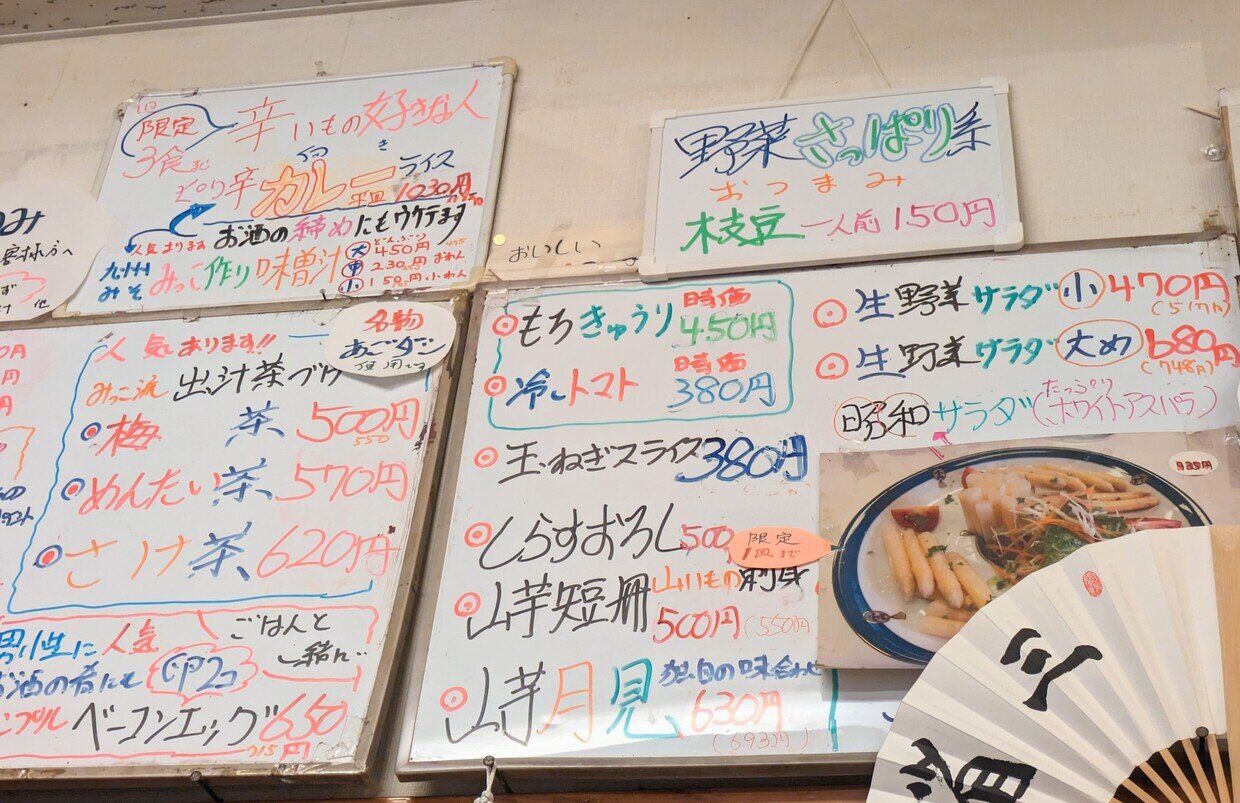 限定
辛いもの好きな人
3食まで
カレーライス
1030円
お酒の締めにもウケてます
人気あります
九州みそ
みっこ作り味噌汁
大 450円
中 230円 おわん
小 150円 小わん
野菜さっぱり系
おつまみ
枝豆 一人前150円
おいしい
名物
あごダシ
使用です
人気あります!!
みっこ流 出汁茶づけ
梅茶 500円
550
めんたい茶 570円
さけ茶 620円
男性に人気
ごはんと
一緒に
お酒の肴にも
卵2コ
ベーコンエッグ 650円
715
もろきゅうり 時価 450円
冷しトマト 時価 380円
玉ねぎスライス 380円
しらすおろし 500
山芋短冊 山いもの刺身
500円 (550円
山芋月見 独自の味合わせ
630円
(693円)
生野菜サラダ 小 470円
(517円)
生野菜サラダ 大め 680円
(748円)
昭和サラダ(たっぷりホワイトアスパラ)
限定
1皿まで
三